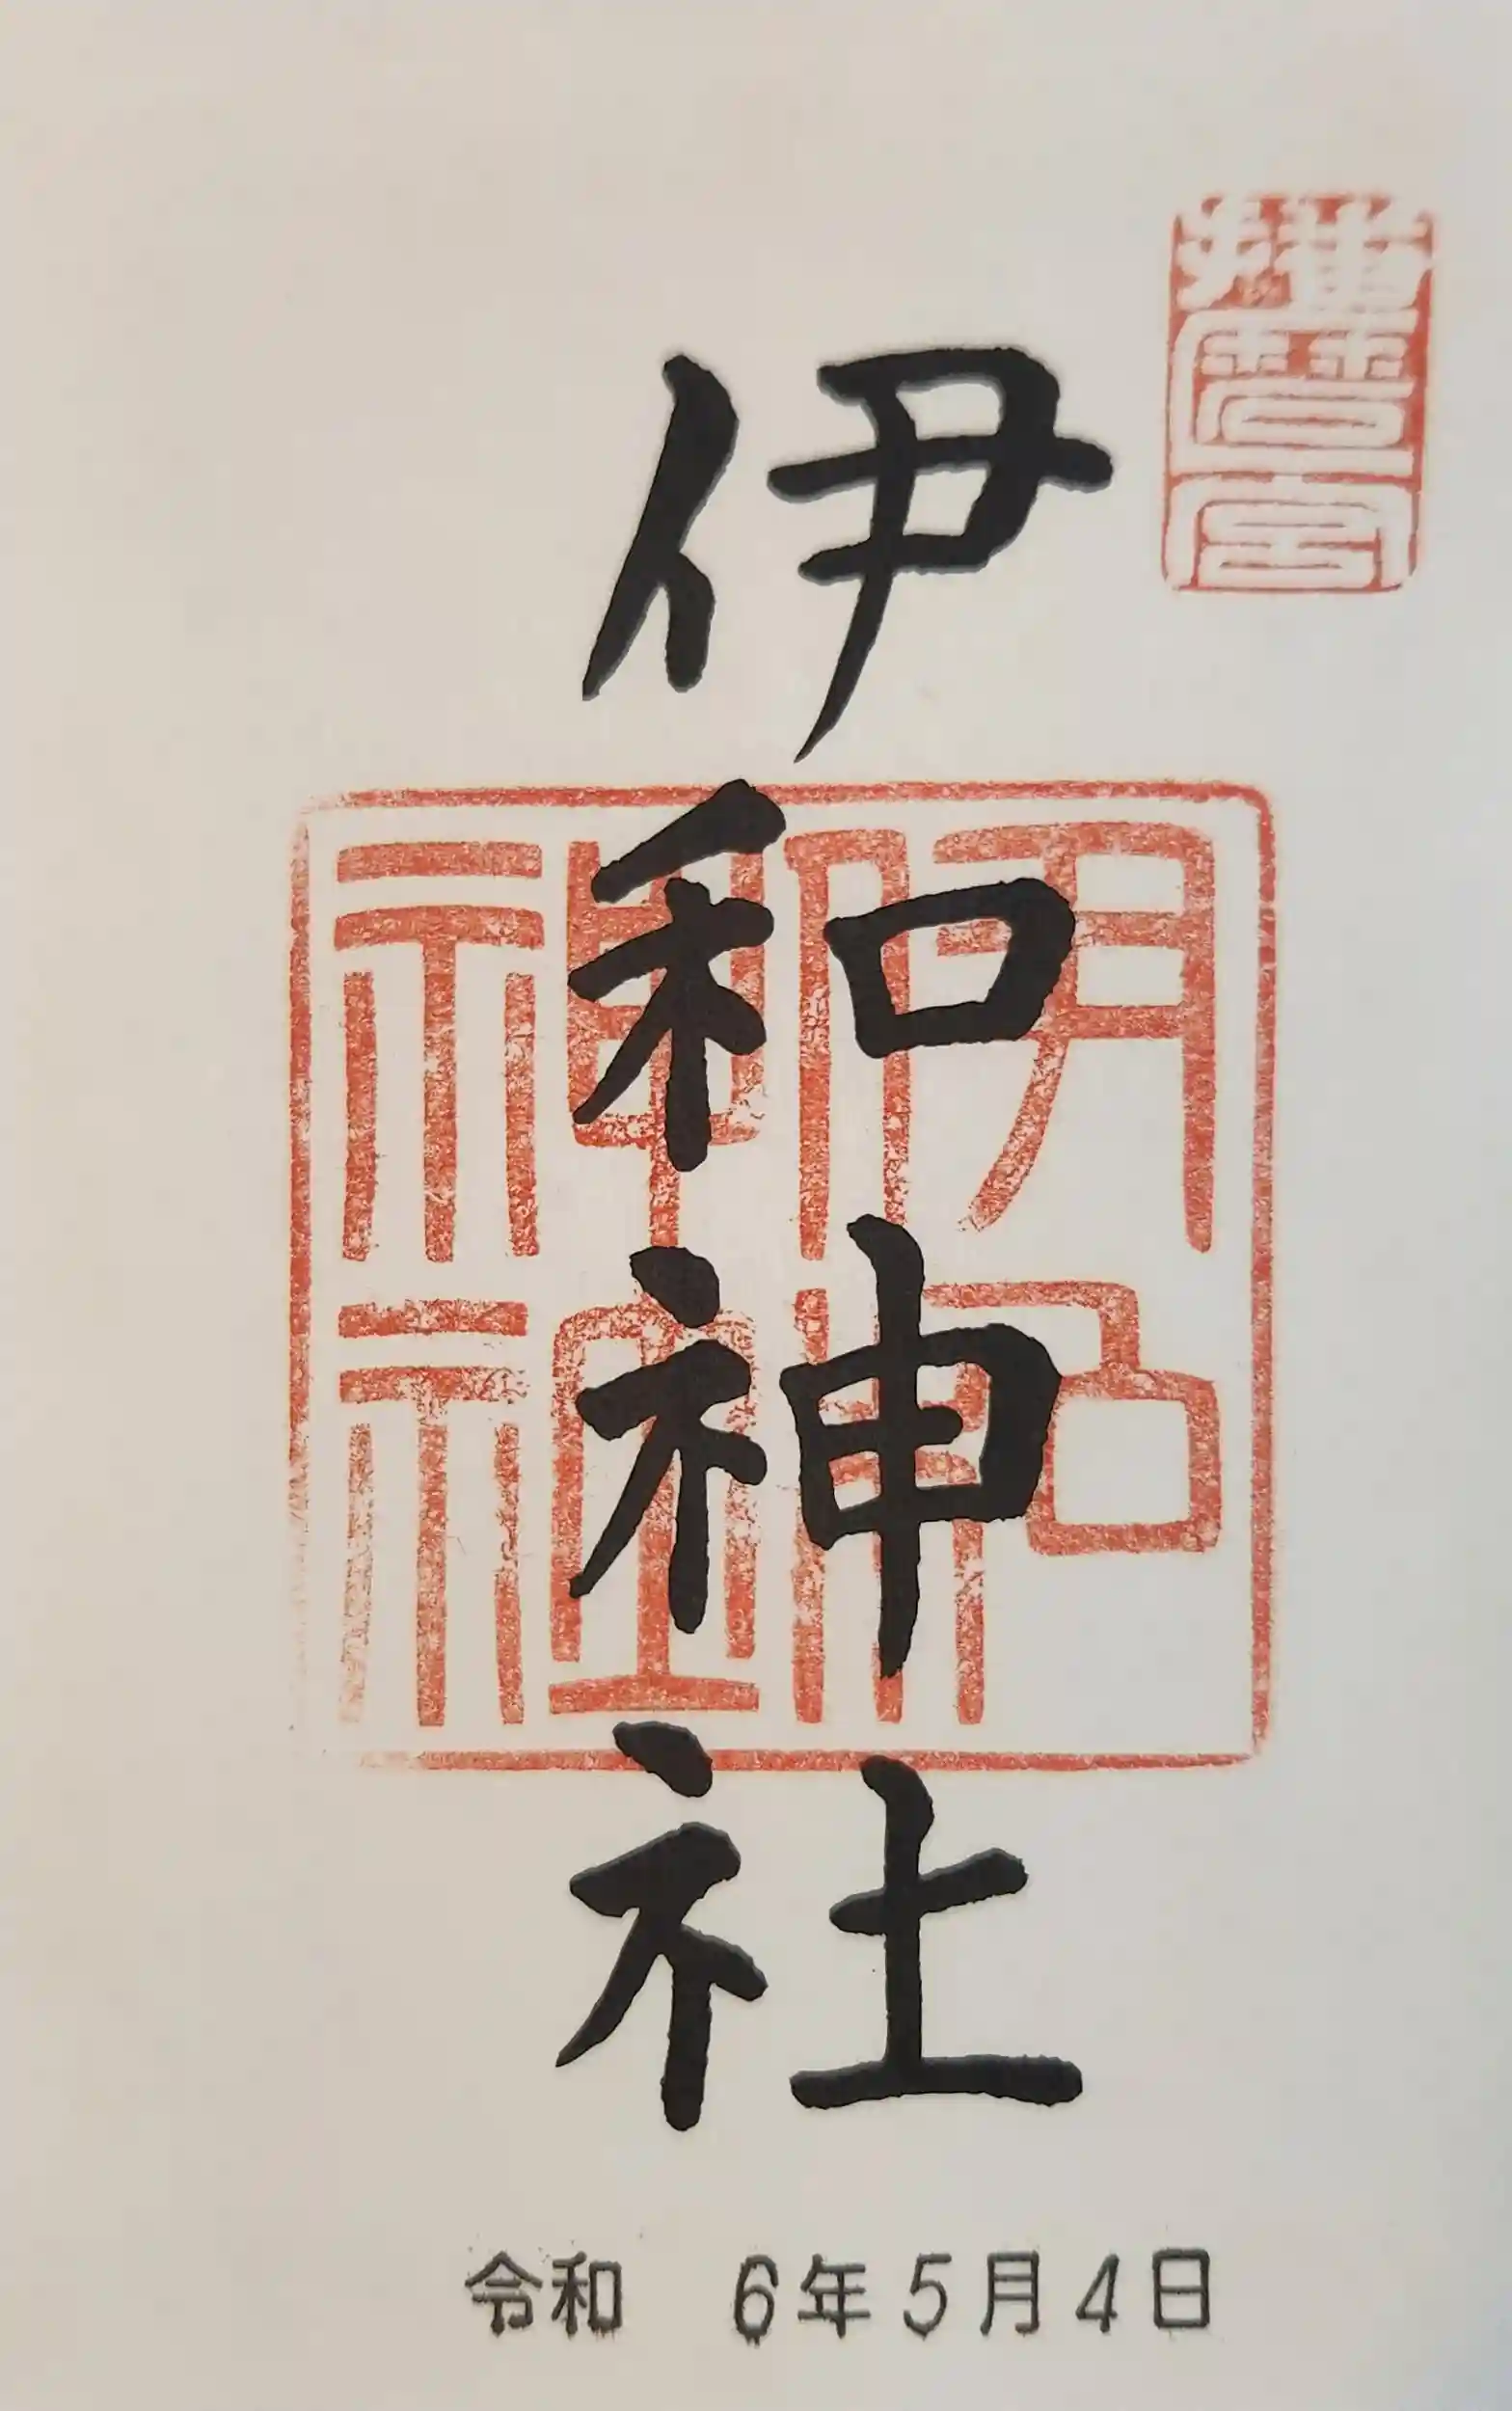 播磨一宮
伊和神社
伊和神社
令和　6年5月4日